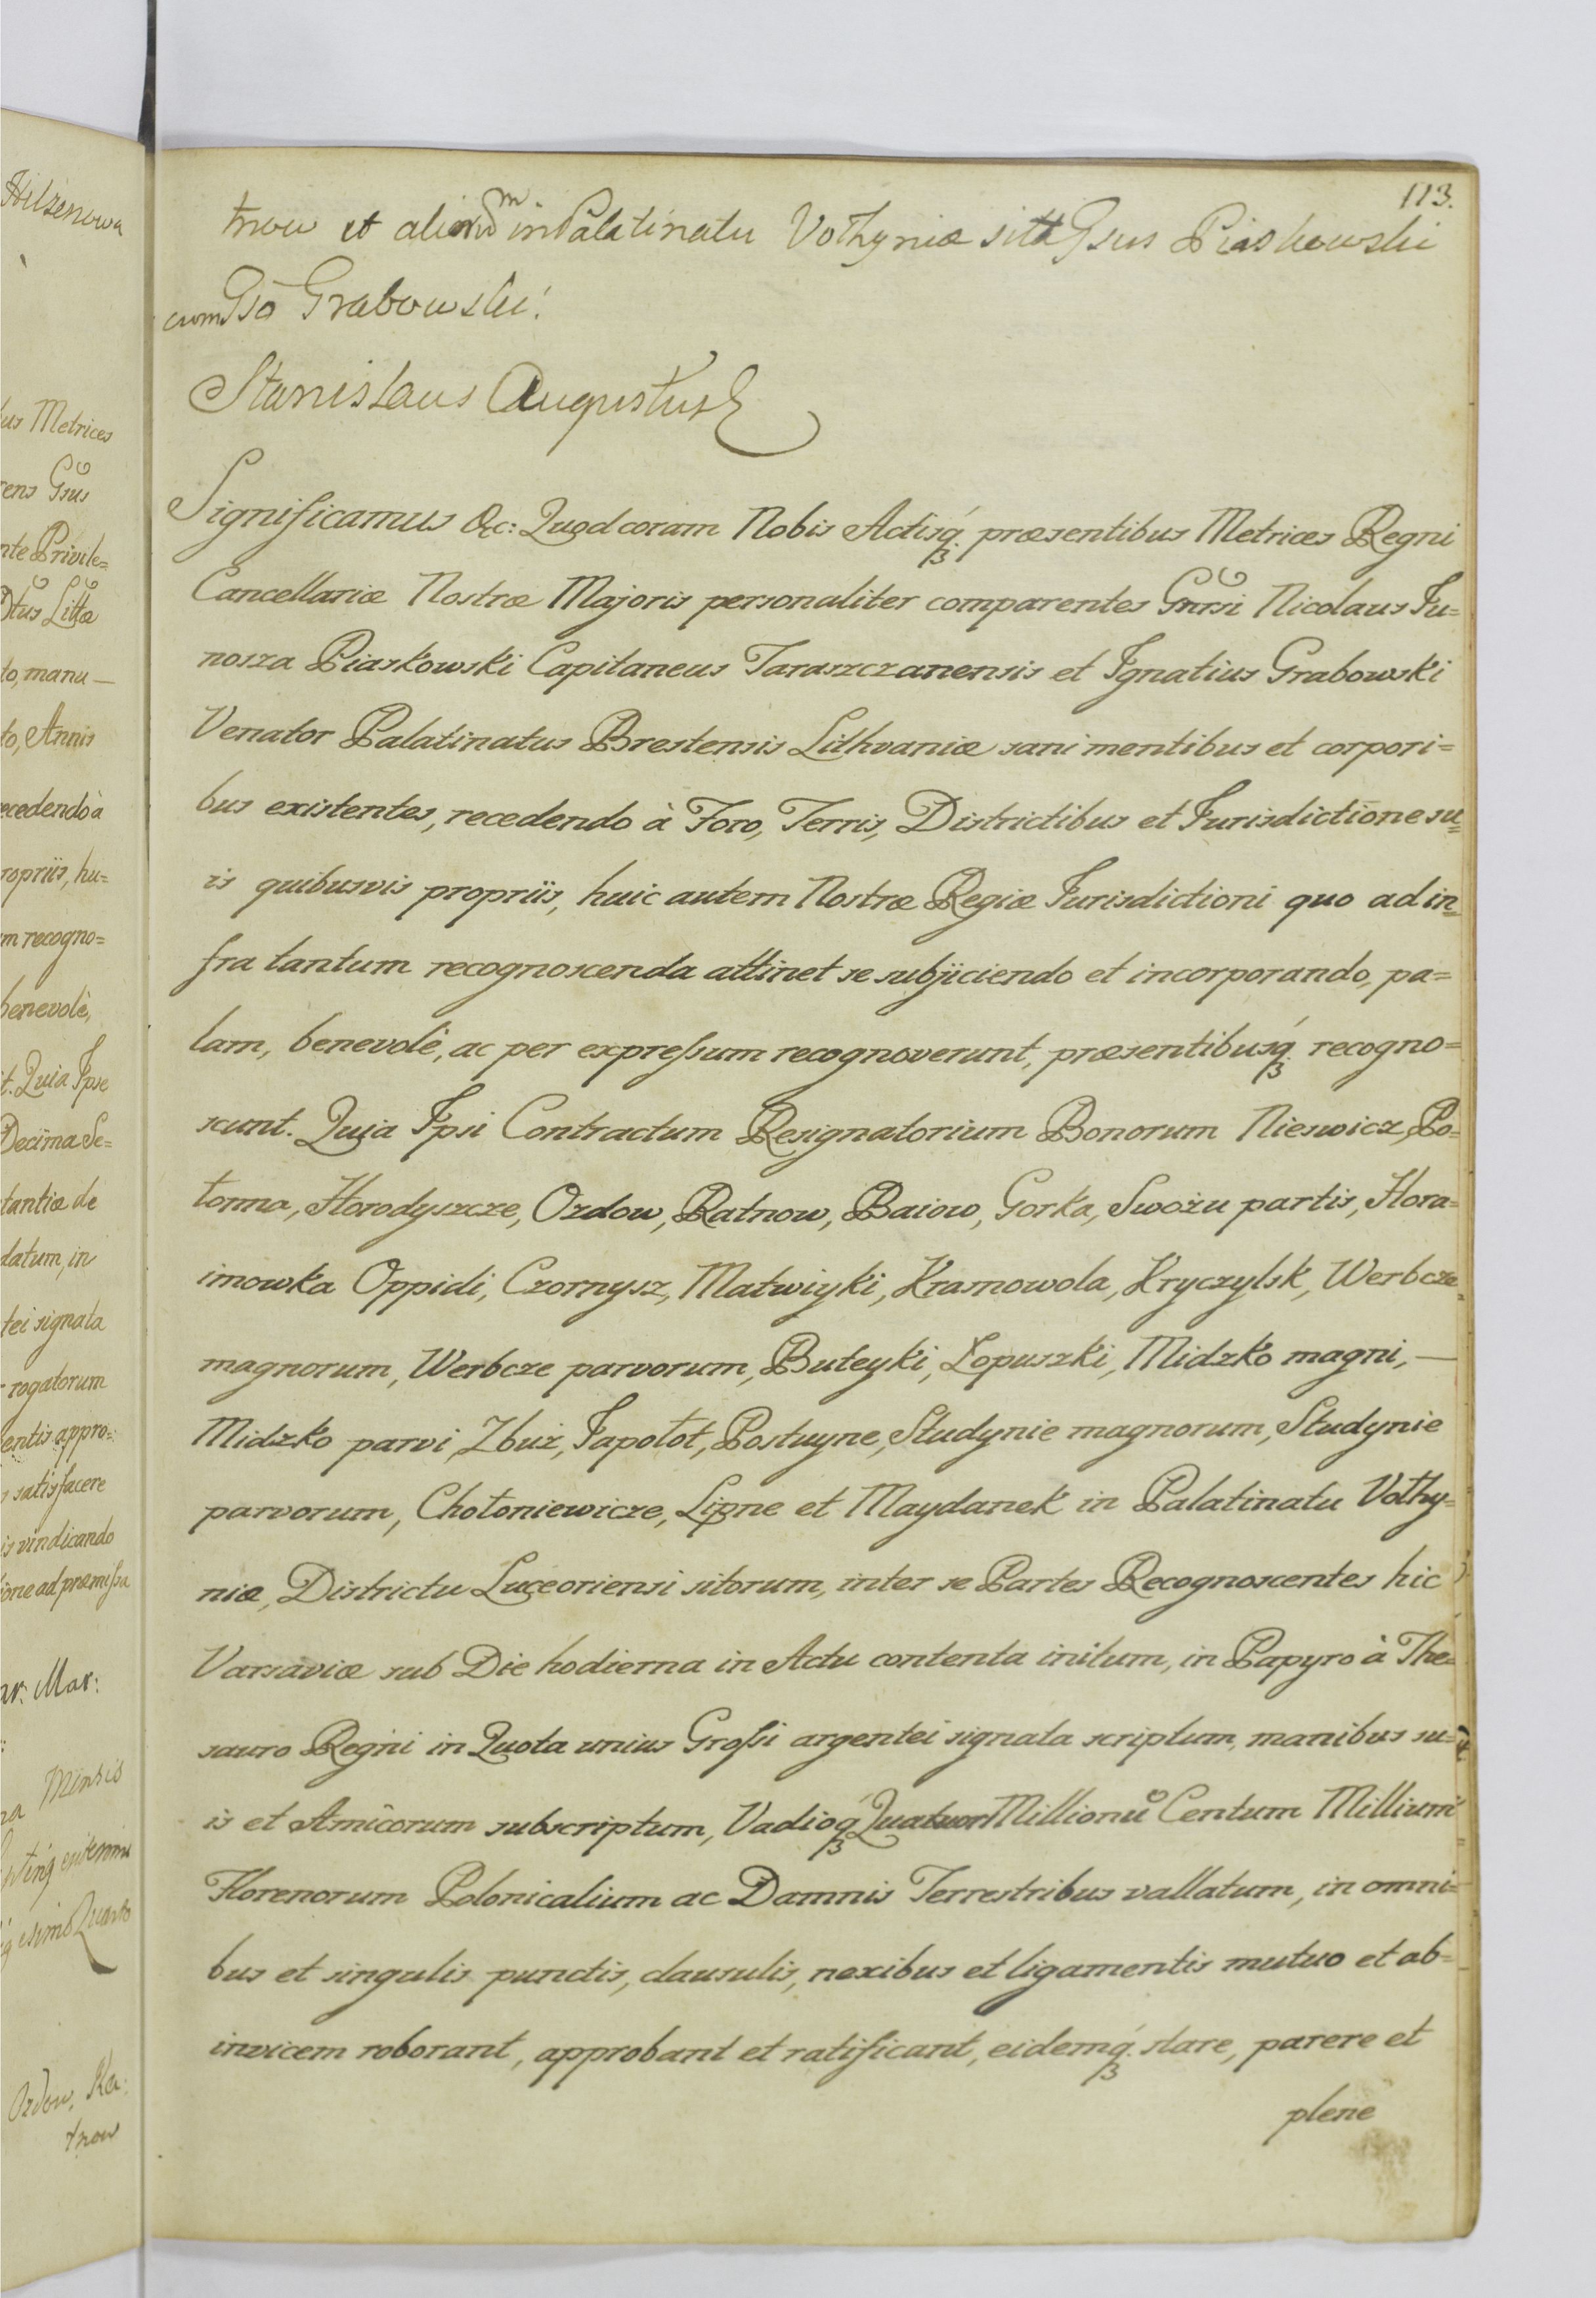 113.
tnow et aliorum in Palatinatu Wołhyniæ sitt Gsus Piaskowski
cum Gso Grabowski.
Stanislaus Augustus
Significamus &c: Quod coram Nobis Actisq́ꝫ præsentibus Metrices Regni
Cancellariæ Nostræ Majoris personaliter comparentes Gnrsi Nicolaus Ju=
nosza Piaskowski Capitaneus Taraszczanensis et Ignatius Grabowski
Venator Palatinatus Brestensis Lithvaniæ sani mentibus et corpori=
bus existentes, recedendo à Foro, Terris, Districtibus et Jurisdictione su=
is quibusvis propriis, huic autem Nostræ Regiæ Jurisdictioni quo ad in=
fra tantum recognoscenda attinet se subjiciendo et incorporando, pa=
lam, benevolè, ac per expreſsum recognoverunt, præsentibusq́ꝫ recogno=
scunt. Quia Ipsi Contractum Resignatorium Bonorum Nieswicz, Po=
tonna, Horodyszcze, Ozdow, Ratnow, Baiow, Gorka, Swożu partis, Hora=
imowka Oppidi, Czornysz, Matwiyki, Krasnowola, Kryczylsk, Werbcze
magnorum, Werbcze parvorum, Buteyki, Łopuszki, Midzko magni, —
Midzko parvi, Zbuż, Japołot, Postuyne, Studynie magnorum, Studynie
parvorum, Chotoniewicze, Lipne et Maydanek in Palatinatu Vołhy=
niæ, Districtu Luceoriensi sitorum, inter se Partes Recognoscentes hic
Varsaviæ sub Die hodierna in Actu contenta initum, in Papyro à The=
sauro Regni in Quota unius Groſsi argentei signata scriptum, manibus su=
is et Amicorum subscriptum, Vadioq́ꝫ Quatuor Millionū Centum Millium
Florenorum Polonicalium ac Damnis Terrestribus vallatum, in omni=
bus et singulis punctis, clausulis, nexibus et ligamentis mutuo et ab=
invicem roborant, approbant et ratificant, eidemq́ꝫ stare, parere et
plene